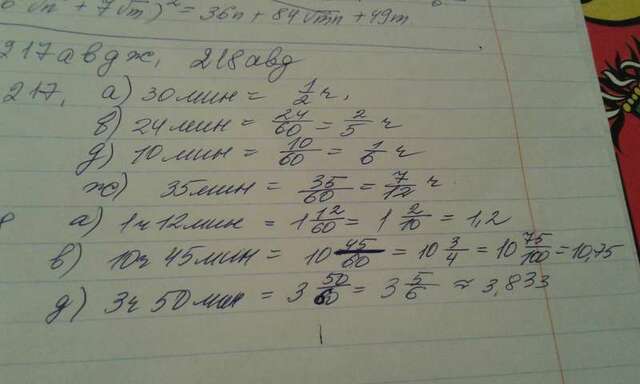 √n + 7√m)² = 36n + 84√mn + 49m
217авдж, 218авд
217, а) 30 мин = 1/2 ч,
в) 24 мин = 24/60 = 2/5 ч
д) 10 мин = 10/60 = 1/6 ч
ж) 35 мин = 35/60 = 7/12 ч
а) 1ч 12мин = 1 12/60 = 1 2/10 = 1,2
в) 10ч 45 мин = 10 45/60 = 10 3/4 = 10 75/100 = 10,75
д) 3ч 50 мин = 3 50/60 = 3 5/6 ≈ 3,833